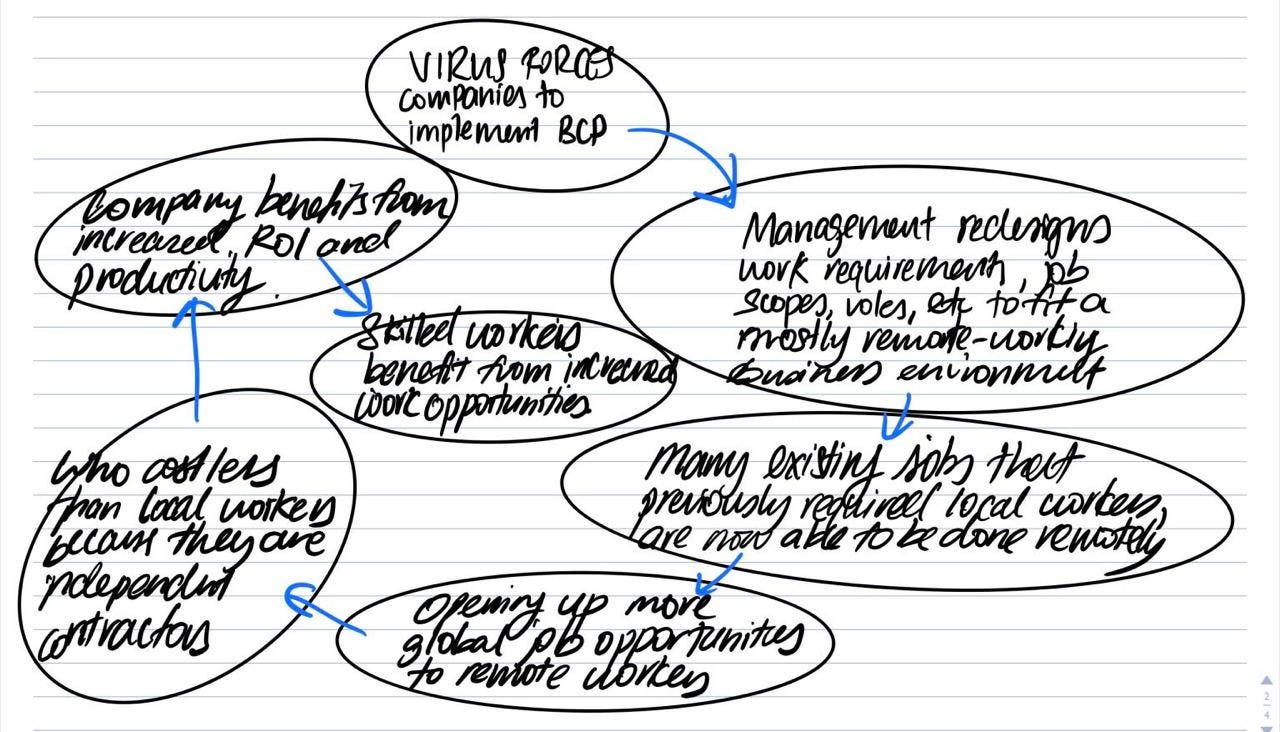 VIRUS FORCES
companies to
implement BCP
Management redesigns
work requirements, job
scopes, roles, etc to fit a
mostly remote-working
business environment
Many existing jobs that
previously required local workers,
are now able to be done remotely
Opening up more
global job opportunities
to remote workers
Who cost less
than local workers
because they are
independent
contractors
Company benefits from
increased ROI and
productivity.
Skilled workers
benefit from increased
work opportunities
2
4